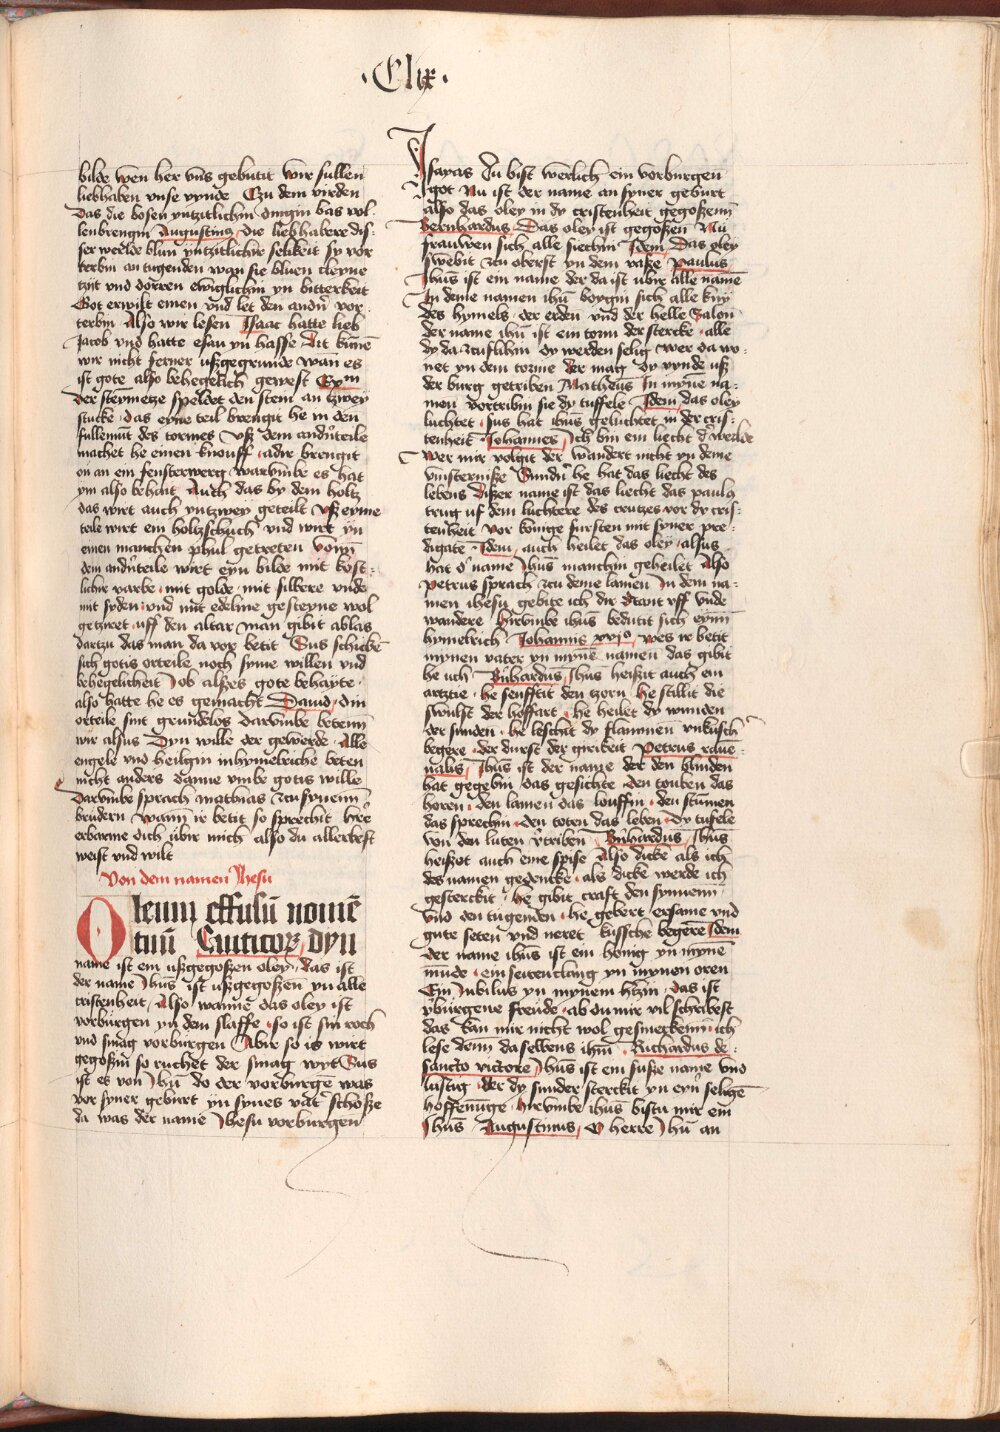 ·Clix·
bilde wen her vns gebutit wir sullen
liebhaben vnse vynde Czu dem virden
Das die bosen vnczitlichin dingin bas vol
lenbrengin Augustinus die liebhabere dis-
ser werlde blun vnczitlichir selikeit sy vor
terbin an tugenden wan sie bluen cleyne
tzyt vnd dorren ewiglichin yn bitterkeit
Got erwilt einen vnd let den andn̄ vor
terbin Also wir lesen Isaac hatte lieb
Jacob vnd hatte esau yn hasse Dit kūnē
wir nicht ferner vßgegrunde wan es
ist gote also behegelich gewest
Der steymetze speldet den stein an tzwey
stucke das eyne teil brengit he in den
fullemūt des tormes Vß dem andn̄teile
machet he einen knouff adir brengit
en an ein fensterwerg warvmbe es hat
ym also behait Auch das by dem holtz
das wirt auch yntzwey geteilt Vß eyme
teile wirt ein holtzschuch vnd wirt yn
einen manchen phul getreten
dem andn̄teile wirt eyn bilde mit kost-
lichir varbe mit golde mit silbere vnde
mit syden vnd mit edeline gesteyne wol
getziret uff den altar man gibit ablas
dartzu das man da vor betit Sus schicken
sich gotis orteile noch syme willen vnd
behegelicheit ob alßes gote behayte
also hatte he es gemacht Dauid Din
orteile sint grundelos Darvmbe beten
wir alsus Dyn wille der gewerde Alle
engele vnd heilgin inhymelriche beten
nicht anders danne vmbe gotis wille
Darvmbe sprach mathias tzu synenn
brudern wann ir betit so sprechit
erbarme dich vbir mich also du allerbest
weist vnd wilt
Von dem namen Jhesu
Oleum effusū nomē
tuū Canticorū dyn
name ist ein vßgegoßen oley das ist
der name Jhūs ist vßgegoßen yn alle
cristenheit Also wanne das oley ist
vorburgen yn dem slaffe so ist sin roch
vnd smag vorburgen Abir so is wirt
gegoßin so ruchet der smag wyt Sus
ist es von Jhū do der vorburgē was
vor syner geburt yn synes vatr schoße
da was der name Jhesu vorburgen
Isayas Du bist werlich ein vorburgen
got Nu ist der name an syner geburt
also das oley in dy cristenheit gegoßenn
Bernhardus Das oley ist gegoßen Nu
frauwen sich alle siechin Idem Das oley
swebit tzu oberst yn dem vaße Paulus
Jhūs ist ein name der da ist ubir alle namē
In deme namen ihū boygin sich alle kny
des hymels der erden vnd der helle Salon
der name ihū ist ein torm der stercke alle
dy da tzuflihin dy werden selig wer da wo-
net yn dem torme der mag dy vynde uß
der burg getriben Matheus In mynē na-
men vortribin sie dy tuffele Idem das oley
luchtet sus hat ihūs geluchtet in der cris-
tenheit Johannes Ich bin ein liecht d' werlde
Wer mir volgit der wandert nicht yn deme
vinsterniße Sundn̄ he hat das liecht des
lebens Dißer name ist das liecht das paulus
trug uf dem luchtere des crutzes vor dy cris-
tenheit vor konige fursten mit syner pre-
digate Idem auch heilet das oley alsus
hat d' name Jhūs manchin geheilet Also
Petrus sprach tzu deme lamen In dem na-
men ihesu gebite ich dir Stant vff vnde
wandere Hirvmbe ihūs bedutit sich eynn
hymelrich Johannis xvjo Wes ir betit
mynen vater yn mynē namen das gibit
he uch Bn̄hardus Jhūs heißit auch ein
artztie he senfftit den tzorn he stillit die
swulst der hoffart he heilet dy wunden
der sunden he leschit dy flammen vnkusch
begere der durst der girikeit Petrus rauē-
nalis Jhūs ist der name der den blinden
hat gegebin das gesichte den touben das
horen den lamen das louffin den stummen
das sprechin den toten das leben dy tufele
von den luten v'triben Bn̄hardus Jhūs
heißet auch eine spise Also dicke als ich
des namen gedencke als dicke werde ich
gesterckit he gibit craft den synnenn
vnd den tugenden he gebert ersame vnd
gute seten vnd neret kussche begere Idem
der name ihūs ist ein honig yn mynē
munde ein seitenclang yn mynen oren
Ein Jubilus yn mynem h'tzin das ist
v'burgene freude ab du mir vil schribest
das kan mir nicht wol gesmecken ich
lese denn daselbens ihūm Richardus de
sancto victore Jhūs ist ein suße name vnd
lustig der dy sunder sterckit yn eyn seligē
hoffenunge Hirvmbe ihūs bistu mir ein
Jhūs Augustinus O herre Jhū an